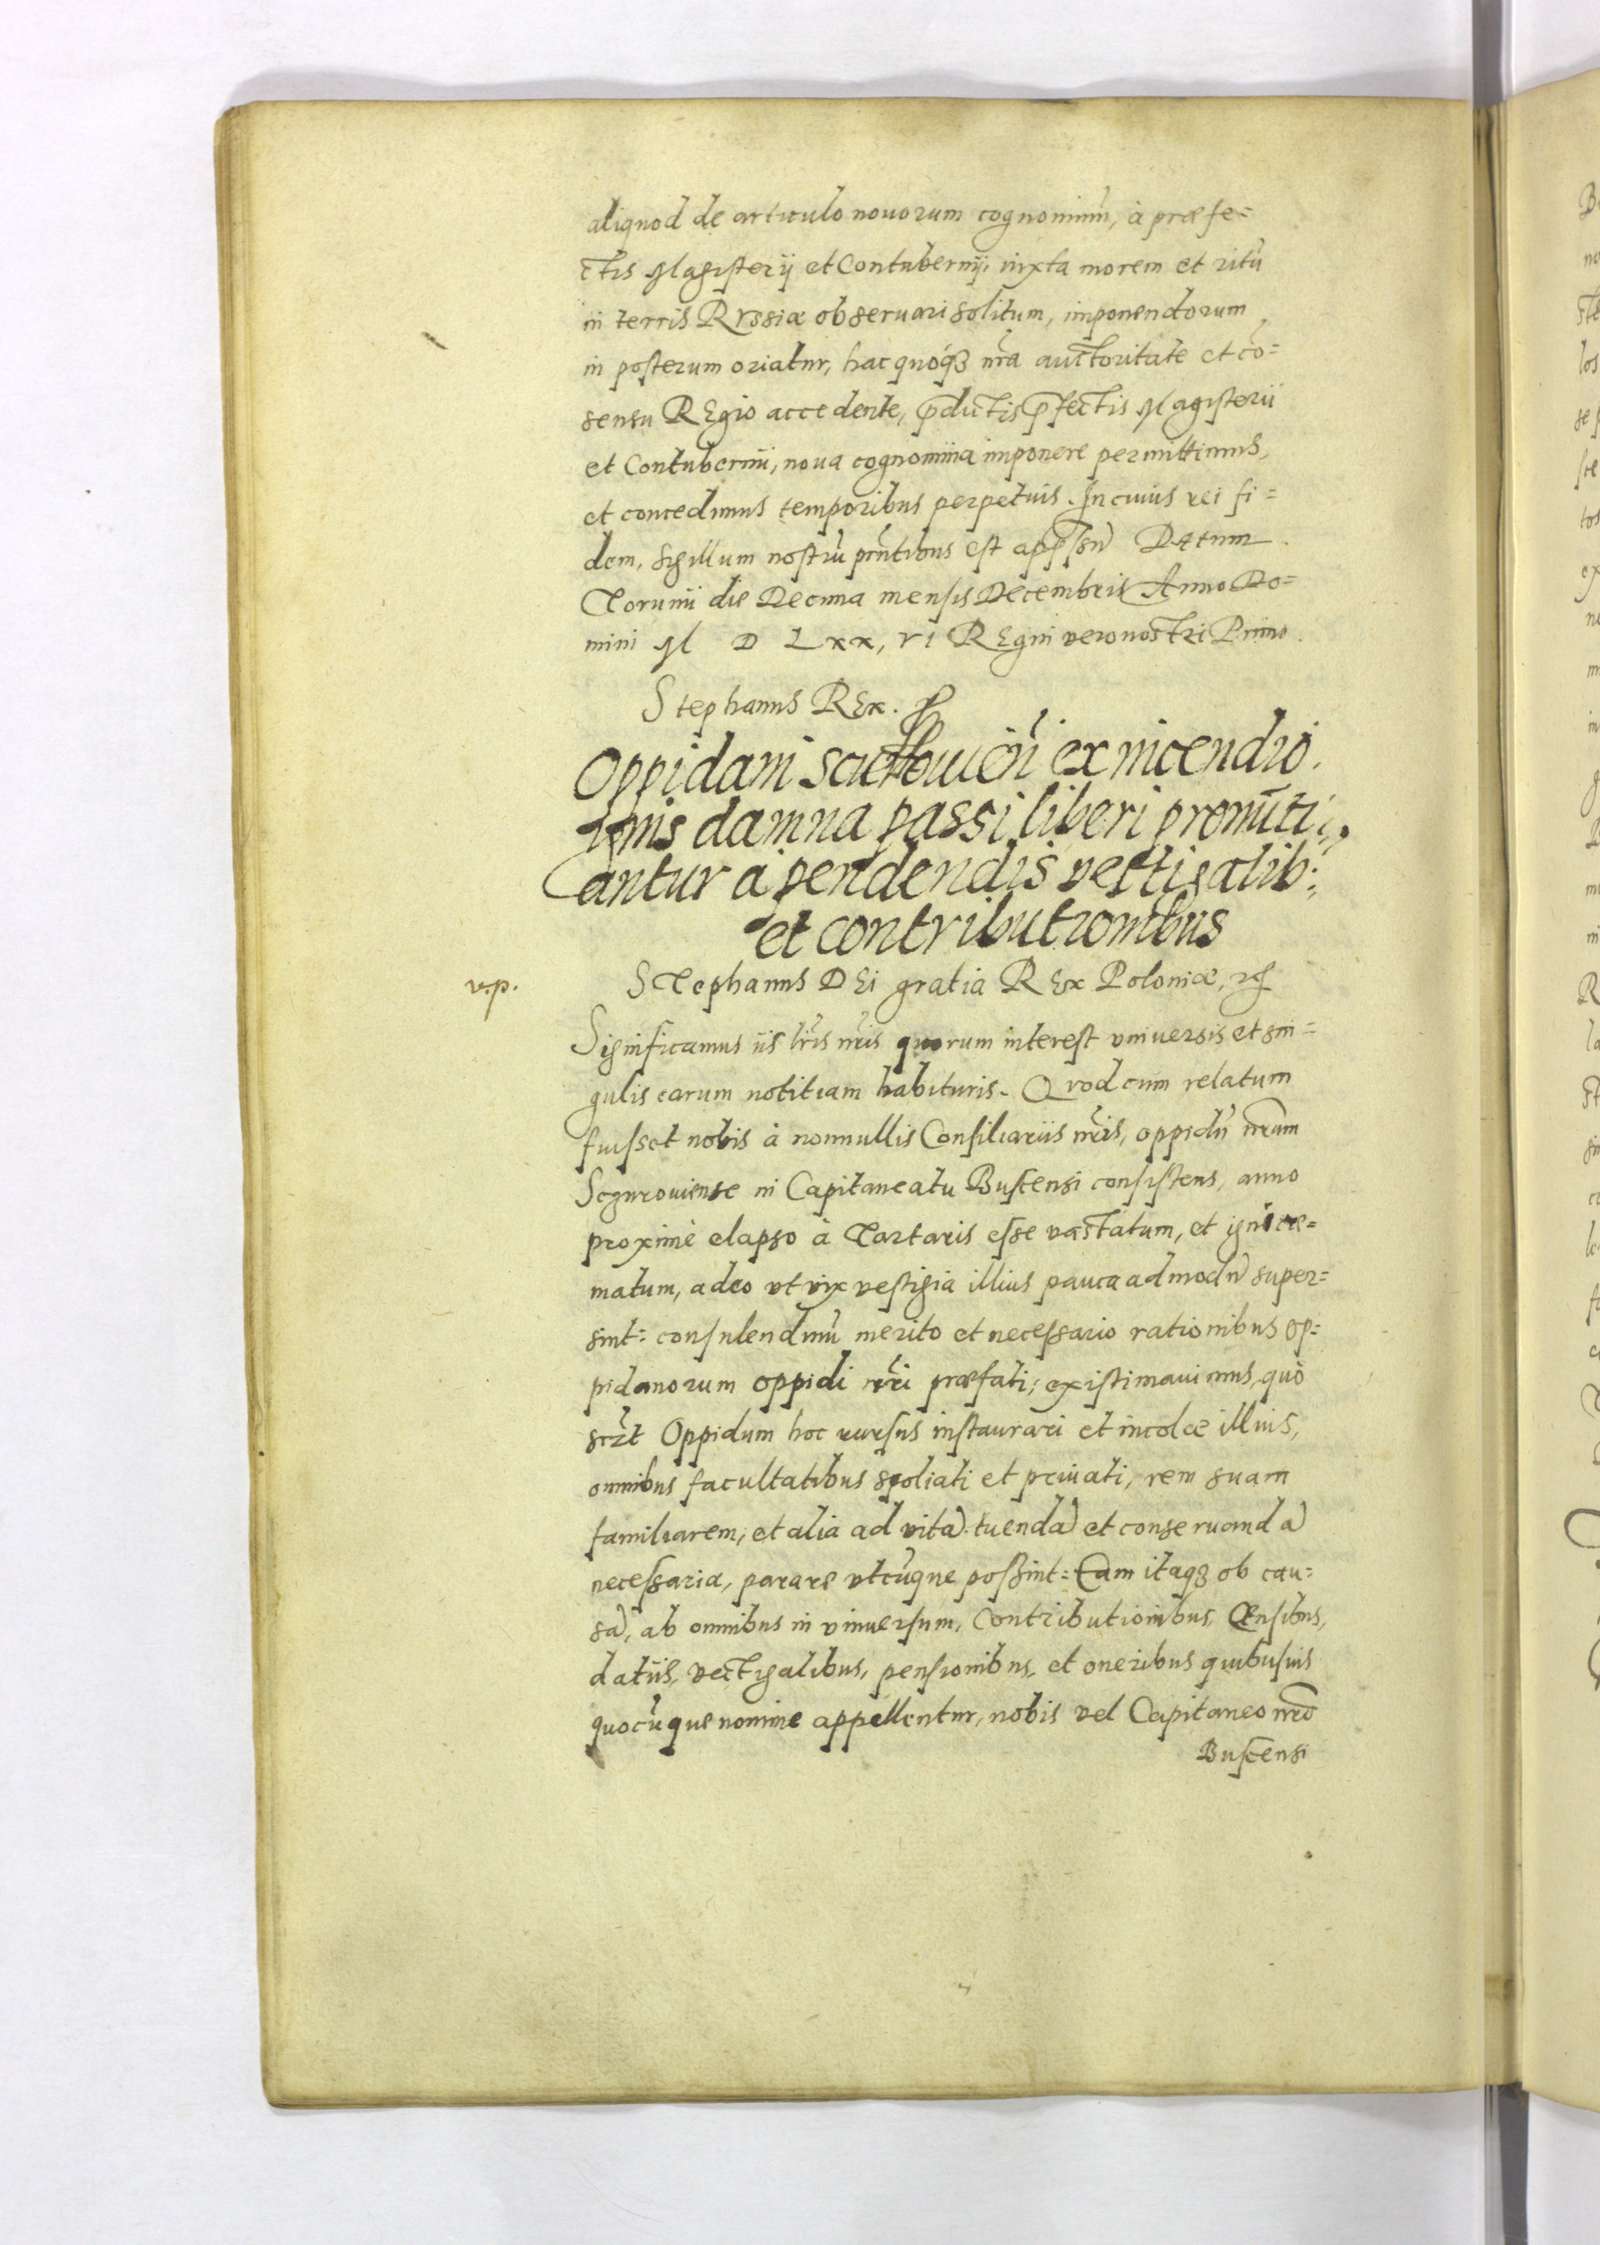 aliquod de articulo nouorum cognominũ, à præfe=
ctis Magisterij et Contubernij, iuxta morem et ritũ
in terris Rvssiæ obseruari solitum, imponendorum
in posterum oriatur, hac quoq; nr̃a auctoritate et cõ=
sensu REgio accedente, p̃dictis p̃fectis Magisterii
et Contubernii, noua cognomina imponere permittimus,
et concedimus temporibus perpetuis. In cuius rei fi=
dem, sigillum nostrũ pñtibus est app̃ssũ Datum
Torunii die Decima mensis Decembris Anno Do=
mini M D Lxx, vi REgni vero nostri Primo.
Stephanus REx.
Oppidani ex incendio
ignis damna passi liberi pronũti
antur a pendendis vectigalib:
et contributionibus
v.p.
STephanus DEi gratia REx Poloniæ, etc
Significamus iis lr̃is nr̃is quorum interest vniuersis et sin=
gulis earum notitiam habituris. Qvod cum relatum
fuisset nobis à nonnullis Consiliariis nr̃is, oppidũ nr̃um
Segnrouiense in Capitaneatu Buscensi consistens, anno
proximè elapso à Tartaris esse vastatum, et igni cre=
matum, adeo vt vix vestigia illius pauca admodũ super=
sint: consulendum merito et necessario rationibus op=
pidanorum oppidi nr̃i præfati; existimauimus, quò
sczt Oppidum hoc rursus instaurari et incolæ illius,
omnibus facultatibus spoliati et priuati, rem suam
familiarem, et alia ad vitã tuendã et conseruandã
necessaria, parare vtcũque possint: Eam itaq; ob cau=
sã, ab omnibus in vniuersum, Contributionibus, Censibus,
datiis, vectigalibus, pensionibus, et oneribus quibusuis
quocũque nomine appellentur, nobis vel Capitaneo nr̃o
Buscensi